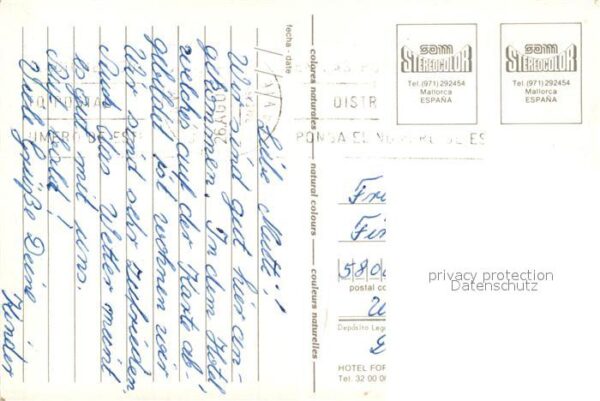 Liebe Mutti!
Wir sind gut hier an-
gekommen. In dem Hotel
welches auf der Karte ab-
gebildet ist wohnen wir
Wir sind sehr zufrieden.
Auch das Wetter meint
es gut mit uns.
Bis bald!
Viele Grüße Deine
Kinder
fecha - date
colores naturales
natural colours
couleurs naturelles
sam
STEREOCOLOR
Tel. (971) 292454
Mallorca
ESPAÑA
sam
STEREOCOLOR
Tel. (971) 292454
Mallorca
ESPAÑA
DISTR
PONGA EL
Fr
580
postal co
Depósito Lega
HOTEL FOR
Tel. 32 00 0
privacy protection
Datenschutz